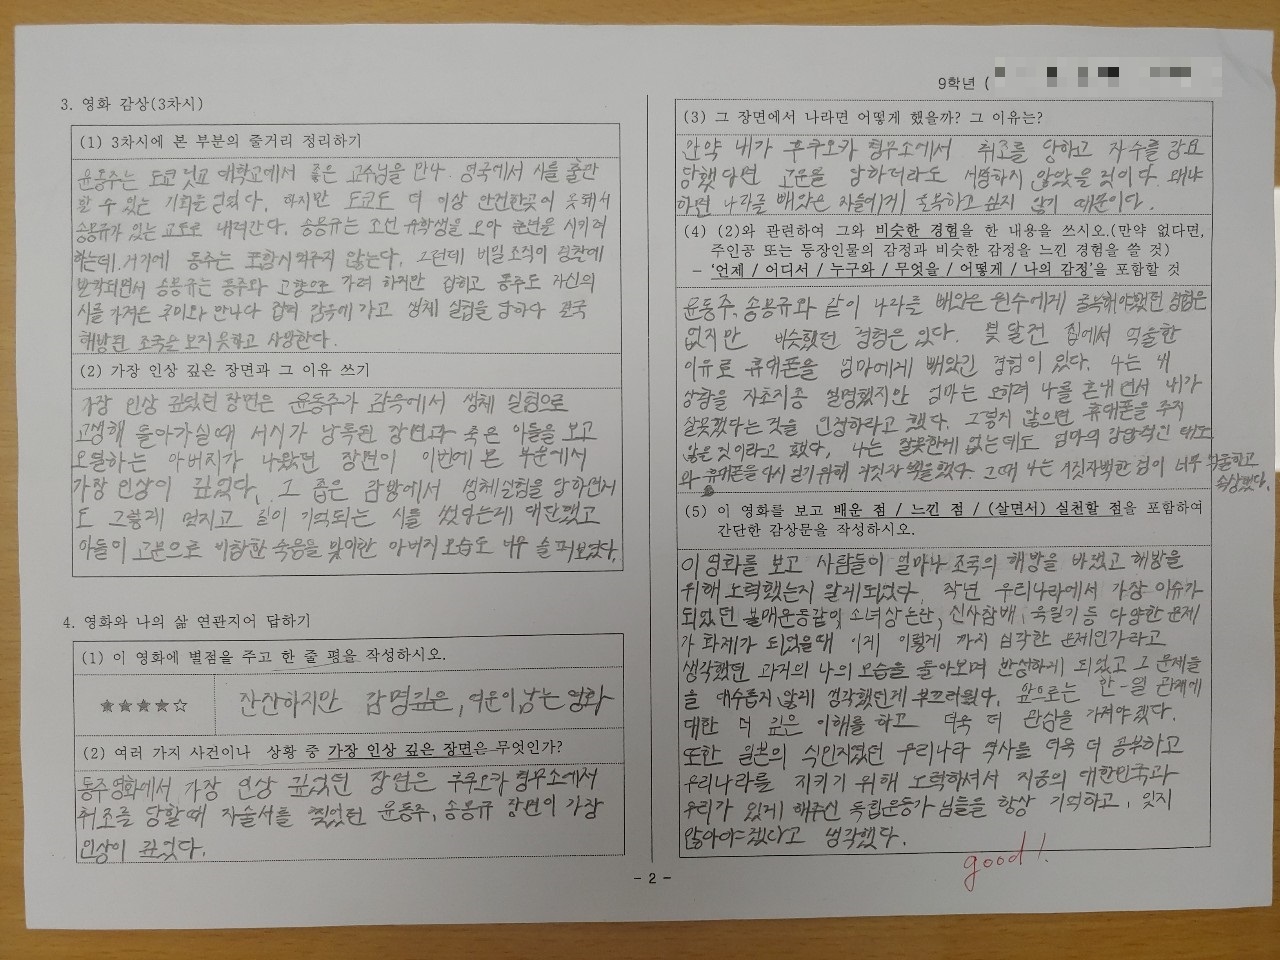 3. 영화 감상(3차시)
(1) 3차시에 본 부분의 줄거리 정리하기
윤동주는 도쿄 릿교 대학교에서 좋은 교수님을 만나 영국에서 시를 출판
할 수 있는 기회를 얻었다. 하지만 도쿄도 더 이상 안전한곳이 못돼서
송몽규가 있는 교토로 내려간다. 송몽규는 조선 유학생을 모아 훈련을 시키려
하는데 거기에 동주는 포함시켜주지 않는다. 그런데 비밀 조직이 경찰에
발각되면서 송몽규는 동주와 고향으로 가려 하지만 잡히고 동주도 자신의
시를 가져온 쿠미와 만나다 잡혀 감옥에 가고 생체 실험을 당하다 결국
해방된 조국을 보지 못하고 사망한다.
(2) 가장 인상 깊은 장면과 그 이유 쓰기
가장 인상 깊었던 장면은 윤동주가 감옥에서 생체 실험으로
고생해 돌아가실때 서시가 낭독된 장면과 죽은 아들을 보고
오열하는 아버지가 나왔던 장면이 이번에 본 부분에서
가장 인상이 깊었다. 그 좁은 감방에서 생체실험을 당하면서
도 그렇게 멋지고 길이 기억되는 시를 썼다는게 대단했고
아들이 고문으로 비참한 죽음을 맞이한 아버지 모습도 너무 슬퍼보였다.
4. 영화와 나의 삶 연관지어 답하기
(1) 이 영화에 별점을 주고 한 줄 평을 작성하시오.
★★★★☆ 잔잔하지만 감명깊은, 여운이 남는 영화
(2) 여러 가지 사건이나 상황 중 가장 인상 깊은 장면은 무엇인가?
동주 영화에서 가장 인상 깊었던 장면은 후쿠오카 형무소에서
취조를 당할때 자술서를 찢었던 윤동주, 송몽규 장면이 가장
인상이 깊었다.
9학년 (
(3) 그 장면에서 나라면 어떻게 했을까? 그 이유는?
만약 내가 후쿠오카 형무소에서 취조를 당하고 자수를 강요
당했다면 고문을 당하더라도 서명하지 않았을 것이다. 왜냐
하면 나라를 빼앗은 자들에게 굴복하고 싶지 않기 때문이다.
(4) (2)와 관련하여 그와 비슷한 경험을 한 내용을 쓰시오.(만약 없다면,
주인공 또는 등장인물의 감정과 비슷한 감정을 느낀 경험을 쓸 것)
- '언제 / 어디서 / 누구와 / 무엇을 / 어떻게 / 나의 감정'을 포함할 것
윤동주, 송몽규와 같이 나라를 빼앗은 원수에게 굴복해야했던 경험은
없지만 비슷했던 경험은 있다. 몇 달전 집에서 억울한
이유로 휴대폰을 엄마에게 빼앗긴 경험이 있다. 나는 내
상황을 자초지종 설명했지만 엄마는 오히려 나를 혼내면서 내가
잘못했다는 것을 인정하라고 했다. 그렇지 않으면 휴대폰을 주지
않을 것이라고 했다. 나는 잘못한게 없는데도 엄마의 강압적인 태도
와 휴대폰을 다시 얻기 위해 거짓자백을했다. 그때 나는 거짓자백한 점이 너무 억울하고
속상했다.
(5) 이 영화를 보고 배운 점 / 느낀 점 / (살면서) 실천할 점을 포함하여
간단한 감상문을 작성하시오.
이 영화를 보고 사람들이 얼마나 조국의 해방을 바랬고 해방을
위해 노력했는지 알게되었다. 작년 우리나라에서 가장 이슈가
되었던 불매운동같이 소녀상 논란, 신사참배, 욱일기 등 다양한 문제
가 화제가 되었을때 이게 이렇게 까지 심각한 문제인가라고
생각했던 과거의 나의 모습을 돌아보며 반성하게 되었고 그 문제들
을 대수롭지 않게 생각했던게 부끄러웠다. 앞으로는 한-일 관계에
대한 더 깊은 이해를 하고 더욱 더 관심을 가져야겠다.
또한 일본의 식민지였던 우리나라 역사를 더욱 더 공부하고
우리나라를 지키기 위해 노력하셔서 지금의 대한민국과
우리가 있게 해주신 독립운동가 님들을 항상 기억하고, 잊지
않아야겠다고 생각했다.
good!
- 2 -